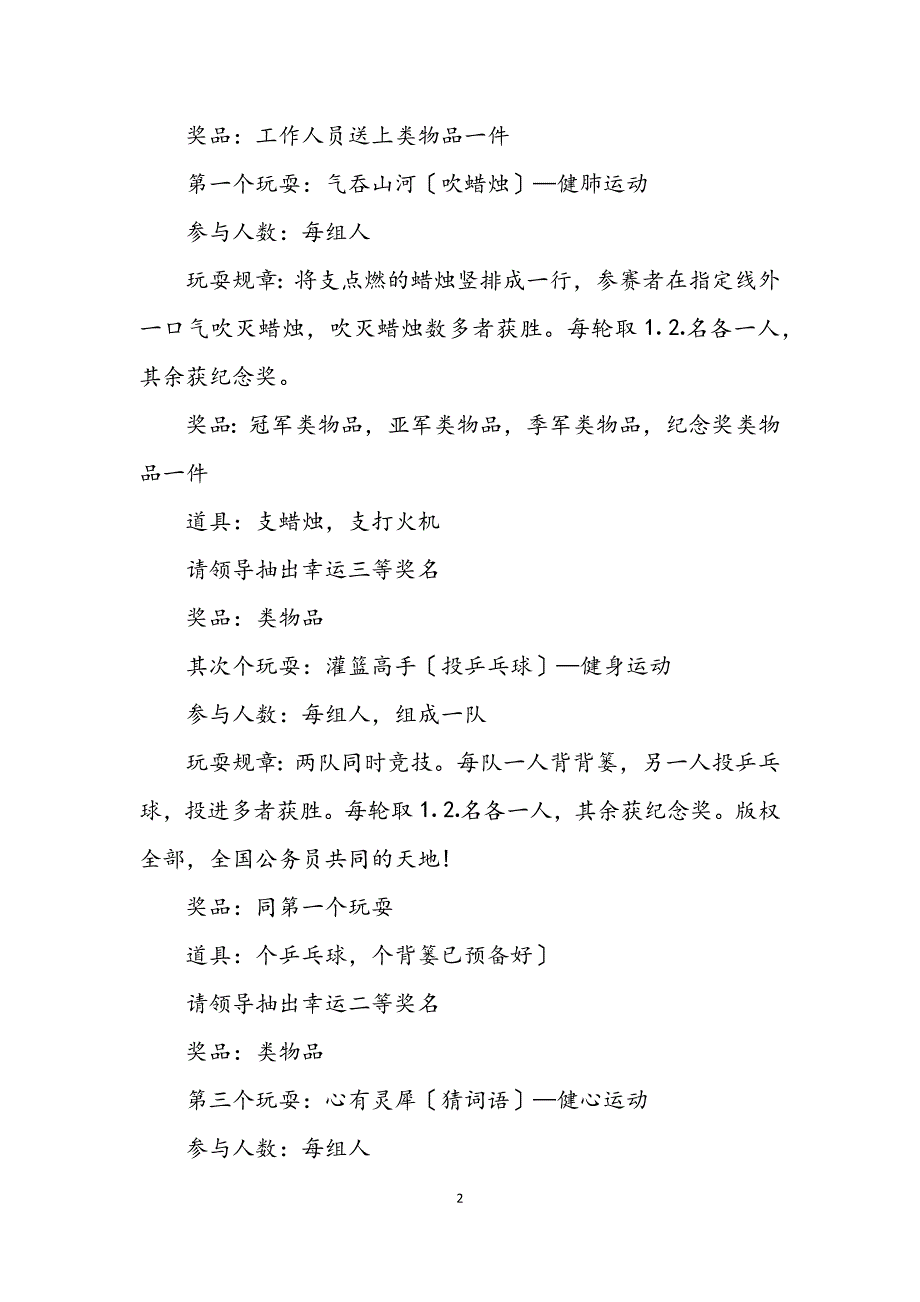 奖品：工作人员送上类物品一件
第一个玩耍：气吞山河〔吹蜡烛〕—健肺运动
参与人数：每组人
玩耍规章：将支点燃的蜡烛竖排成一行，参赛者在指定线外
一口气吹灭蜡烛，吹灭蜡烛数多者获胜。每轮取 1.2.名各一人，
其余获纪念奖。
奖品：冠军类物品，亚军类物品，季军类物品，纪念奖类物
品一件
道具：支蜡烛，支打火机
请领导抽出幸运三等奖名
奖品：类物品
其次个玩耍：灌篮高手〔投乒乓球〕—健身运动
参与人数：每组人，组成一队
玩耍规章：两队同时竞技。每队一人背背篓，另一人投乒乓
球，投进多者获胜。每轮取 1.2.名各一人，其余获纪念奖。版权
全部，全国公务员共同的天地！
奖品：同第一个玩耍
道具：个乒乓球，个背篓已预备好〕
请领导抽出幸运二等奖名
奖品：类物品
第三个玩耍：心有灵犀〔猜词语〕—健心运动
参与人数：每组人
2